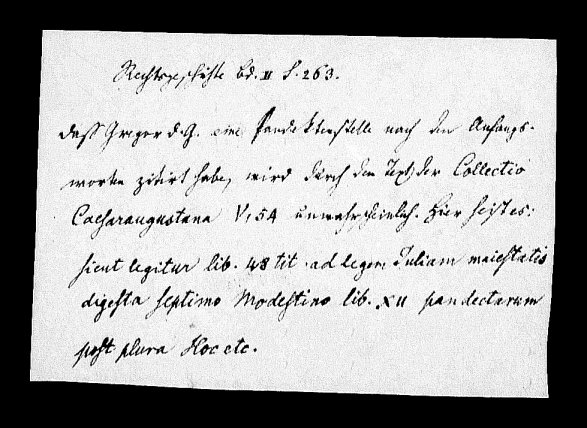 Rechtsgeschichte Bd. II S. 263.
Dass Gregor d. G. eine Pandektenstelle nach den Anfangs-
worten zitirt habe, wird durch den Text der Collectio
Caesaraugustana V, 54 unwahrscheinlich. Hier heisst es:
sicut legitur lib. 48 tit. ad legem Juliam maiestatis
digesta septimo Modestino lib. XII pandectarum
post plura Hoc etc.